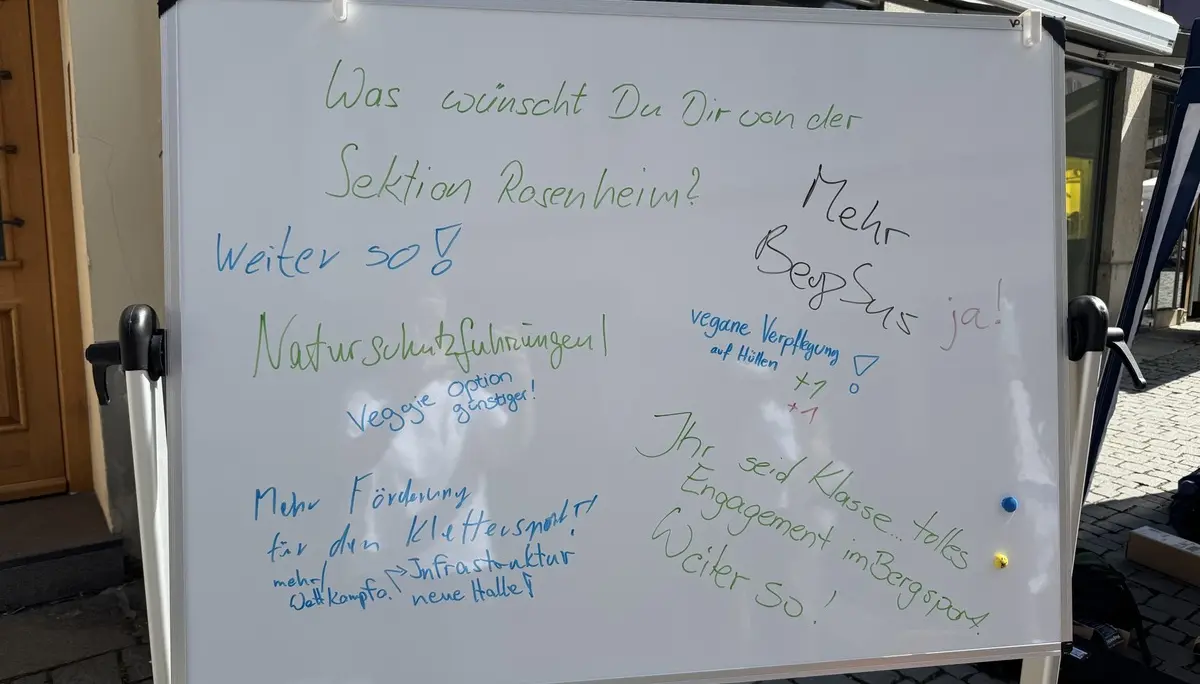 Was wünscht Du Dir von der
Sektion Rosenheim?
Weiter so!
Mehr
BergSus
ja!
Naturschutzführungen!
Veggie Option
günstiger!
vegane Verpflegung
auf Hütten
+1
+1
Mehr Förderung
für den Klettersport!
mehr
Infrastruktur
neue Halle!
Ihr seid Klasse... tolles
Engagement im Bergsport.
Weiter so!